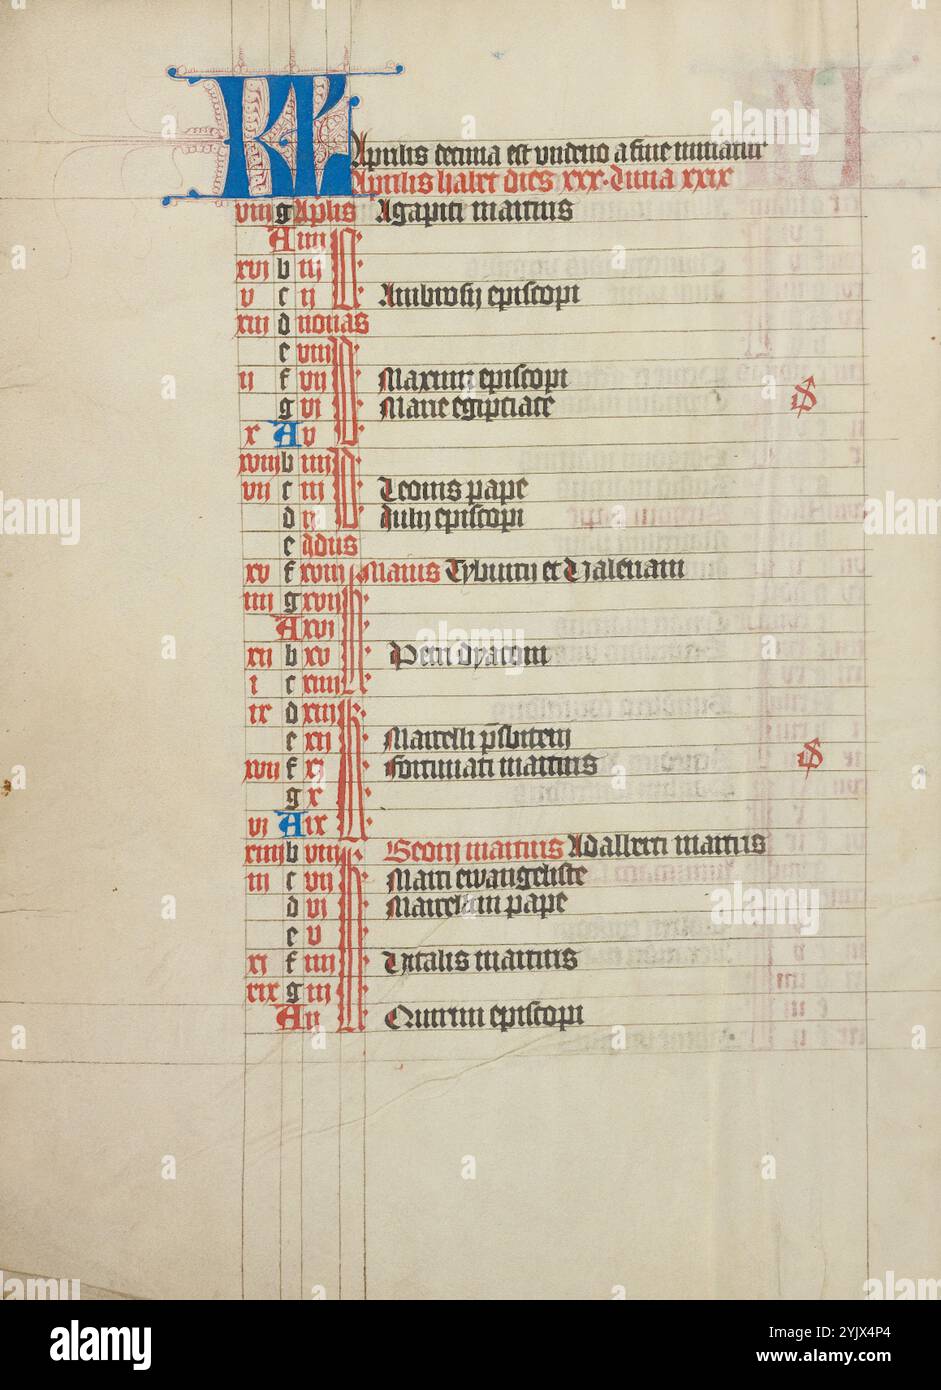 KL Aprilis decima est undeno a fine minatur
Aprilis habet dies xxx. Luna xxix
viii g Aplis Agapiti martiris
A iiii N
xvi b iii
v c ii Ambrosij episcopi
xiii d nonas
e viii Id
ii f vii Maximi episcopi
g vi Marie egiptiace
x A v
xviii b iiii Id
vii c iii Leonis pape
d ii Julij episcopi
e Idus
xv f xviii Maius Tyburtij et Valeriani
iiii g xvii kl
A xvi
xii b xv Petri dyaconi
i c xiiii
ix d xiii kl
e xii Marcelli prsbiterij
xvii f xi Fortunati martiris
g x
vi A ix
xiiii b viii kl Georij martiris Adalberti martiris
iii c vii Marci ewangeliste
d vi Marcellini pape
e v
xi f iiii Vitalis martiris
xix g iii
A ii Quirini episcopi
alamy
Image ID: 2YJX4P4
www.alamy.com